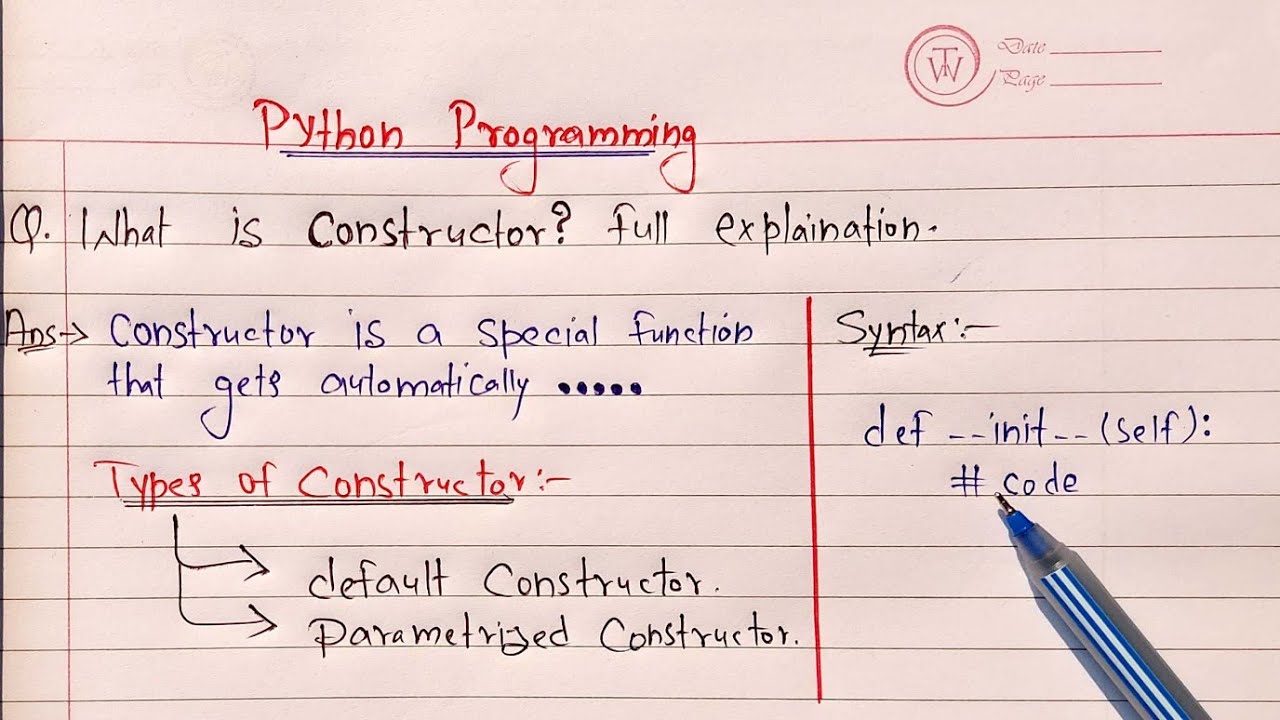 TWN
Date
Page
Python Programming
Q. What is Constructor? full explaination.
Ans→ Constructor is a special function
that gets automatically •••••
Types of Constructor:-
default Constructor.
Parametrized Constructor.
Syntax:-
def --init--(self):
# code